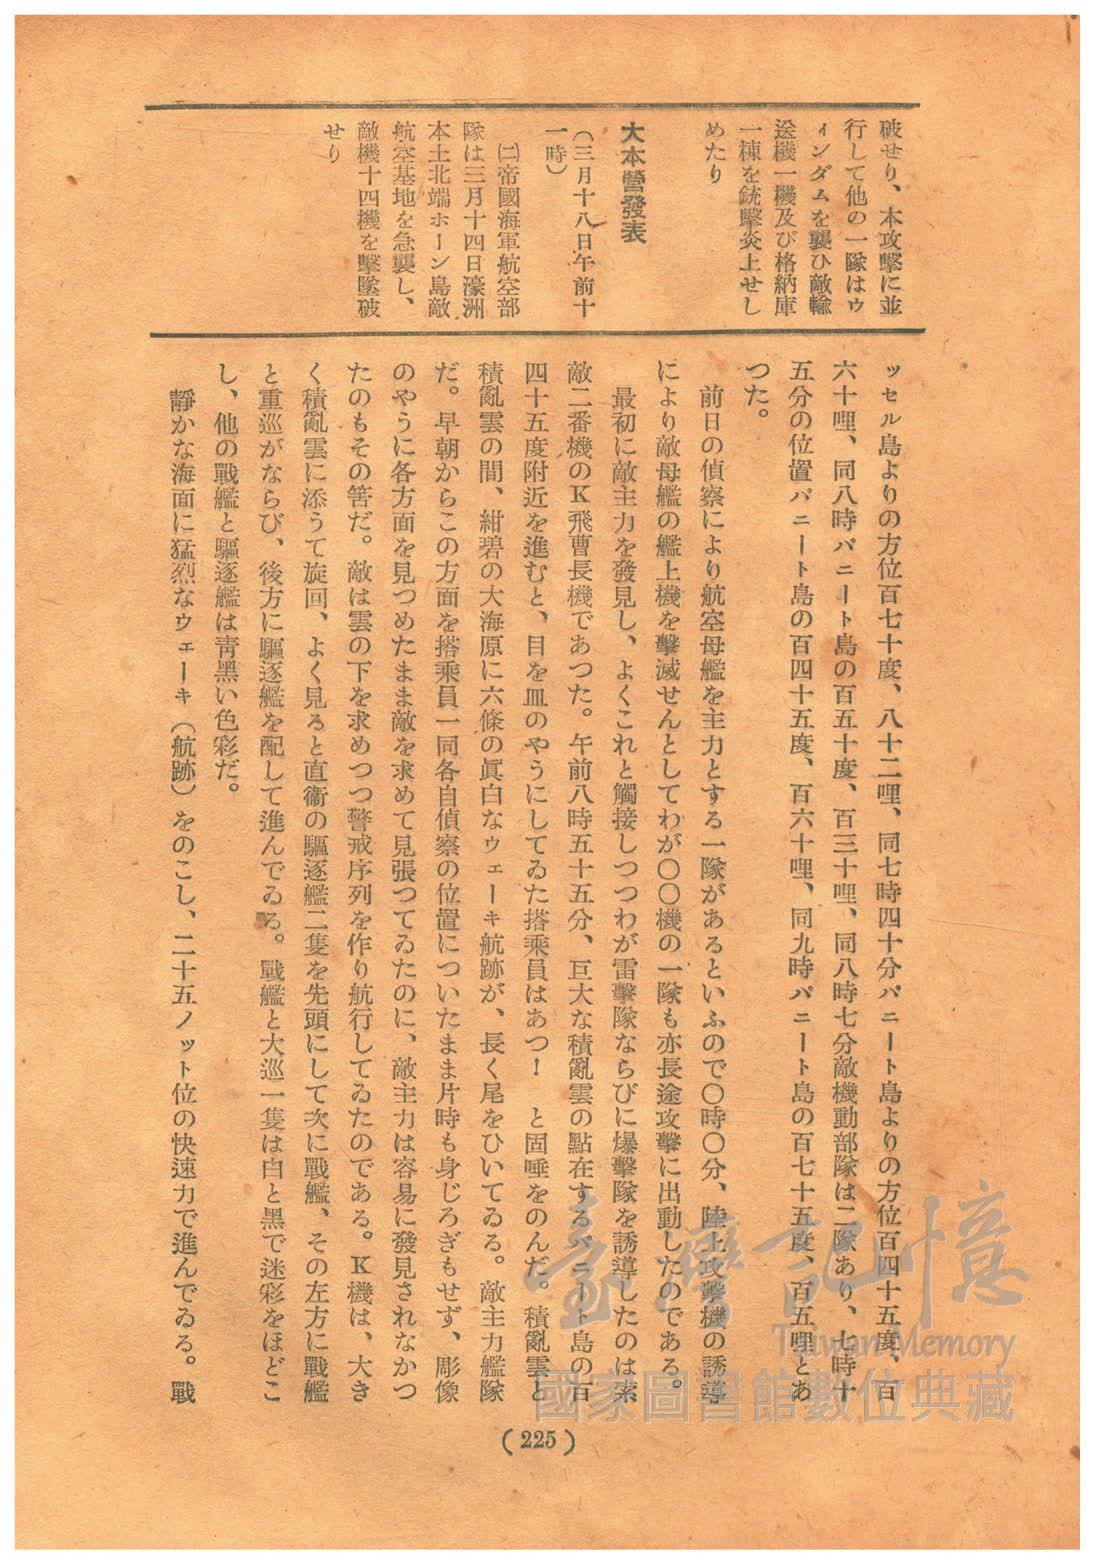 破せり、本攻撃に並
行して他の一隊はウ
ィンダムを襲ひ敵輸
送機一機及び格納庫
一棟を銃擊炎上せし
めたり
大本營發表
（三月十八日午前十
一時）
㈡帝國海軍航空部
隊は三月十四日濠洲
本土北端ホーン島敵
航空基地を急襲し、
敵機十四機を擊墜破
せり
ッセル島よりの方位百七十度、八十二哩、同七時四十分パニート島よりの方位百四十五度、百
六十哩、同八時パニート島の百五十度、百三十哩、同八時七分敵機動部隊は二隊あり、七時十
五分の位置パニート島の百四十五度、百六十哩、同九時パニート島の百七十五度、百五哩とあ
つた。
前日の偵察により航空母艦を主力とする一隊があるといふので〇時〇分、陸上攻擊機の誘導
により敵母艦の艦上機を擊滅せんとしてわが〇〇機の一隊も亦長途攻擊に出動したのである。
最初に敵主力を發見し、よくこれと觸接しつつわが雷擊隊ならびに爆擊隊を誘導したのは索
敵二番機のＫ飛曹長機であつた。午前八時五十五分、巨大な積亂雲の點在するパニート島の百
四十五度附近を進むと、目を皿のやうにしてゐた搭乘員はあつ！　と固唾をのんだ。積亂雲と
積亂雲の間、紺碧の大海原に六條の眞白なウェーキ航跡が、長く尾をひいてゐる。敵主力艦隊
だ。早朝からこの方面を搭乘員一同各自偵察の位置についたまま片時も身じろぎもせず、彫像
のやうに各方面を見つめたまま敵を求めて見張つてゐたのに、敵主力は容易に發見されなかつ
たのもその筈だ。敵は雲の下を求めつつ警戒序列を作り航行してゐたのである。Ｋ機は、大き
く積亂雲に添うて旋回、よく見ると直衞の驅逐艦二隻を先頭にして次に戰艦、その左方に戰艦
と重巡がならび、後方に驅逐艦を配して進んでゐる。戰艦と大巡一隻は白と黑で迷彩をほどこ
し、他の戰艦と驅逐艦は靑黑い色彩だ。
靜かな海面に猛烈なウェーキ（航跡）をのこし、二十五ノット位の快速力で進んでゐる。戰
（225）
臺灣記憶
Taiwan Memory
國家圖書館數位典藏